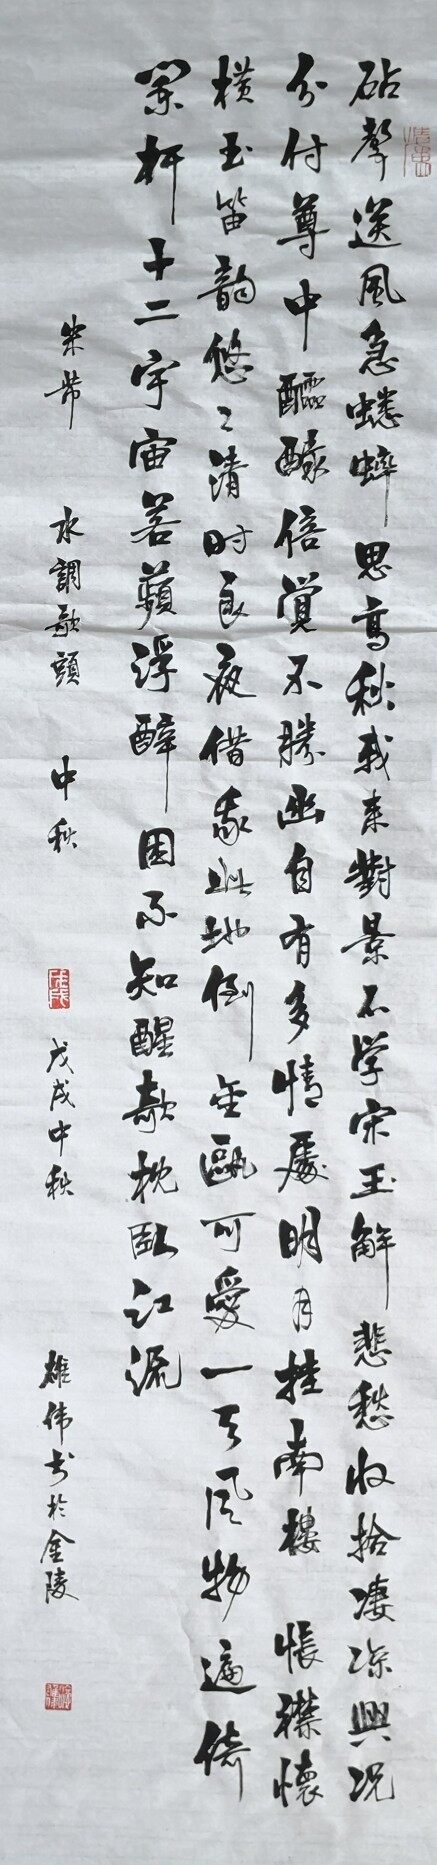 砧聲送風急蟋蟀思高秋我来對景不学宋玉解悲愁收拾凄凉興况
分付尊中醽醁倍覺不勝幽自有多情處明月挂南樓悵襟懷
横玉笛韵悠〻清时良夜借我此地倒金甌可愛一天風物遍倚
闌杆十二宇宙若蘋浮醉困不知醒欹枕卧江流
米芾 水調歌頭 中秋 戊戌 戊戌中秋 雄伟书於金陵